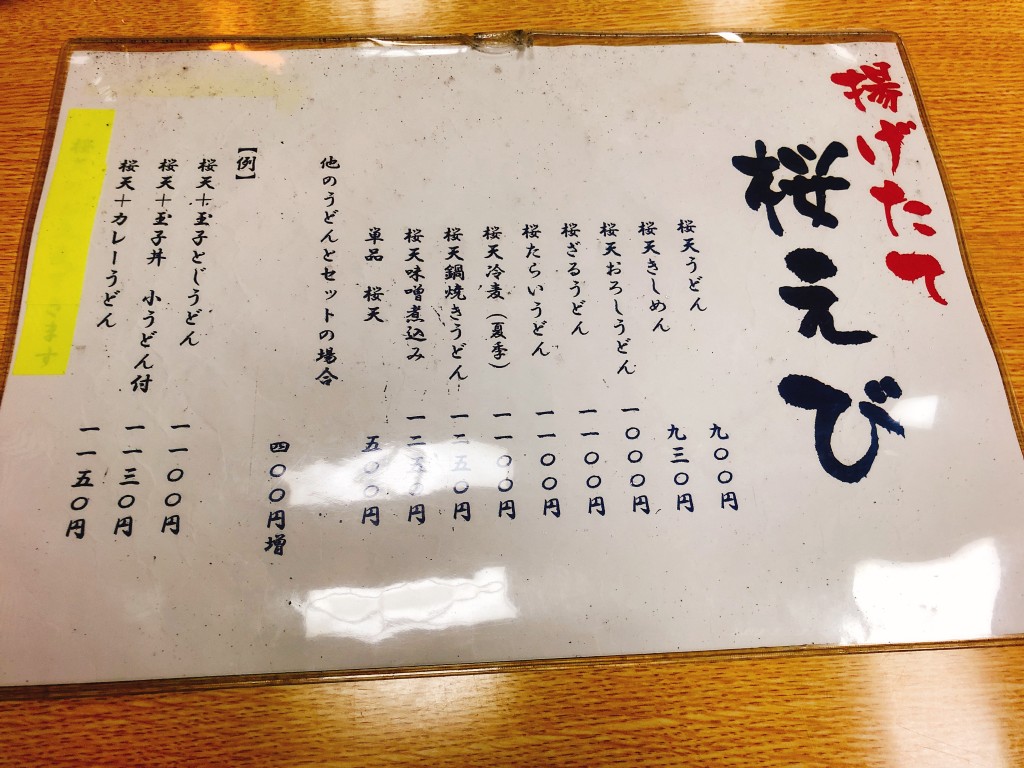 揚げたて
桜えび
桜天うどん 九〇〇円
桜天きしめん 九三〇円
桜天おろしうどん 一〇〇〇円
桜ざるうどん 一一〇〇円
桜たらいうどん 一一〇〇円
桜天冷麦（夏季） 一一〇〇円
桜天鍋焼きうどん 一二五〇円
桜天味噌煮込み 一二五〇円
単品 桜天 五〇〇円
他のうどんとセットの場合 四〇〇円増
【例】
桜天＋玉子とじうどん 一一〇〇円
桜天＋玉子丼 小うどん付 一一三〇円
桜天＋カレーうどん 一一五〇円